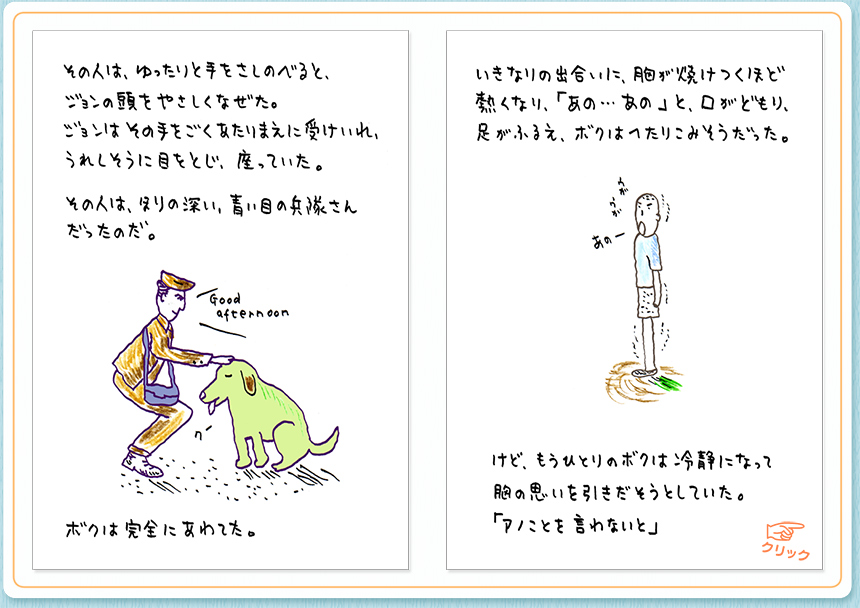 その人は、ゆったりと手をさしのべると、
ジョンの頭をやさしくなぜた。
ジョンはその手をごくあたりまえに受けいれ、
うれしそうに目をとじ、座っていた。
その人は、ほりの深い、青い目の兵隊さん
だったのだ。
Good
afternoon
ク
ボクは完全にあわてた。
いきなりの出合いに、胸が焼けつくほど
熱くなり、「あの…あの」と、口がどもり、
足がふるえ、ボクはへたりこみそうだった。
うが
うが
あのー
けど、もうひとりのボクは冷静になって
胸の思いを引きだそうとしていた。
「アノことを言わないと」
クリック